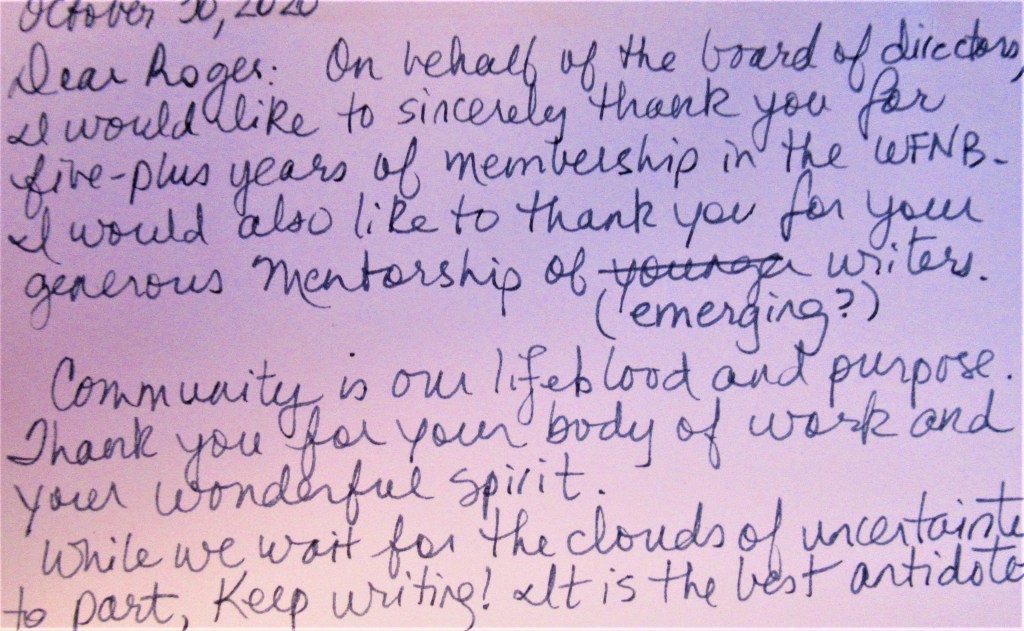 October 30, 2020
Dear Roger: On behalf of the board of directors,
I would like to sincerely thank you for
five-plus years of membership in the WFNB.
I would also like to thank you for your
generous mentorship of younger writers.
(emerging?)
Community is our lifeblood and purpose.
Thank you for your body of work and
your wonderful spirit.
While we wait for the clouds of
to part, Keep writing! It is the best antidote